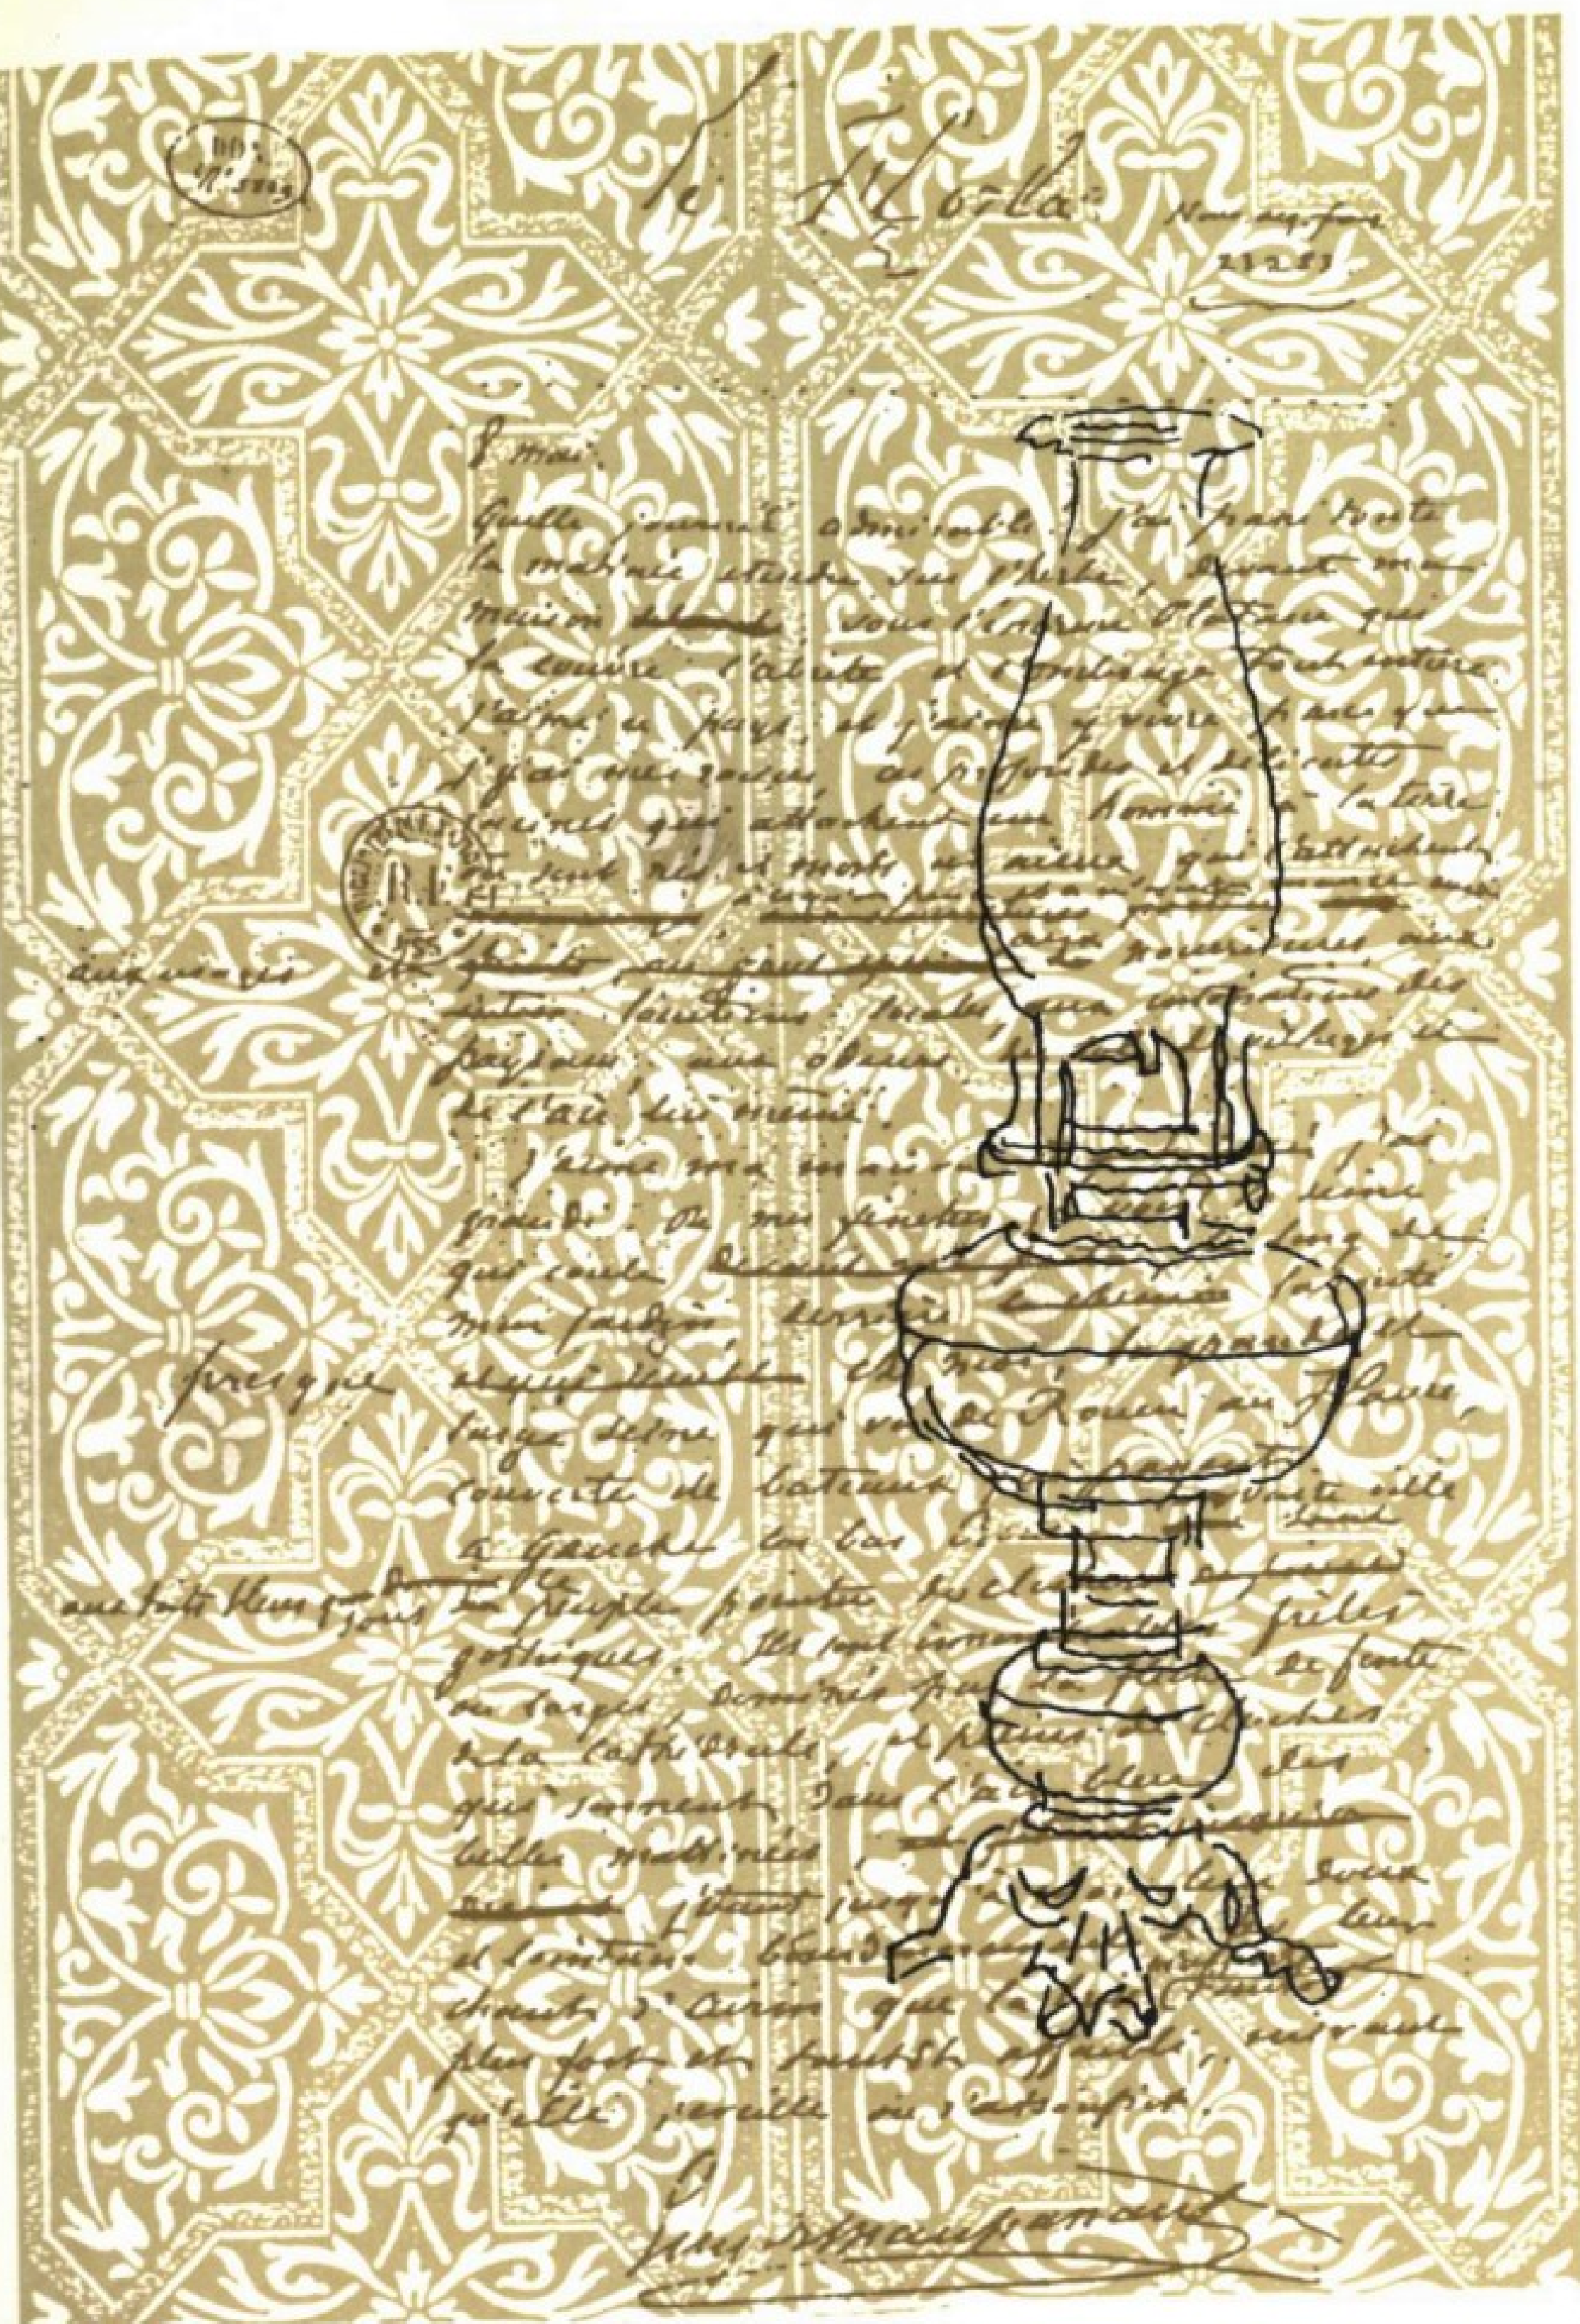 DON
N° 5889
Le Horla
Nouv. acq. franç.
23283
8 mai.
Quelle journée admirable! J'ai passé toute
la matinée étendu sur l'herbe, devant ma
maison sous l'énorme Platane qui
la couvre l'abrite et l'ombrage tout entière.
J'aime ce pays, et j'aime y vivre parce que
j'y ai mes racines, ces profondes et délicates
racines qui attachent un homme à la terre
où sont nés et morts ses aïeux, qui l'attachent
aux usages et aux nourritures, aux
locutions locales, aux intonations des
paysans, aux odeurs villages et
de l'air lui même.
J'aime ma maison j'ai
grandi. De mes fenêtres je vois Seine
qui coule devant long de
mon jardin, derrière le chemin la route
presque chez moi, la grande et
large Seine qui va de Rouen au Havre,
couverte de bateaux passent
à gauche là-bas vaste ville
aux toits bleus sous le peuple pointu des clochers
gothiques. Ils sont frêles
ou larges, dominés par la flèche de fonte
de la cathédrale, et pleins de cloches
qui sonnent dans l'air bleu des
belles matinées,
jetant jusqu'à leur doux
et lointain bourdonnement leur
chant d'airain que la
plus fort et tantôt affaibli, suivant
qu'elle s'éveille ou s'assoupit.
Guy de Maupassant